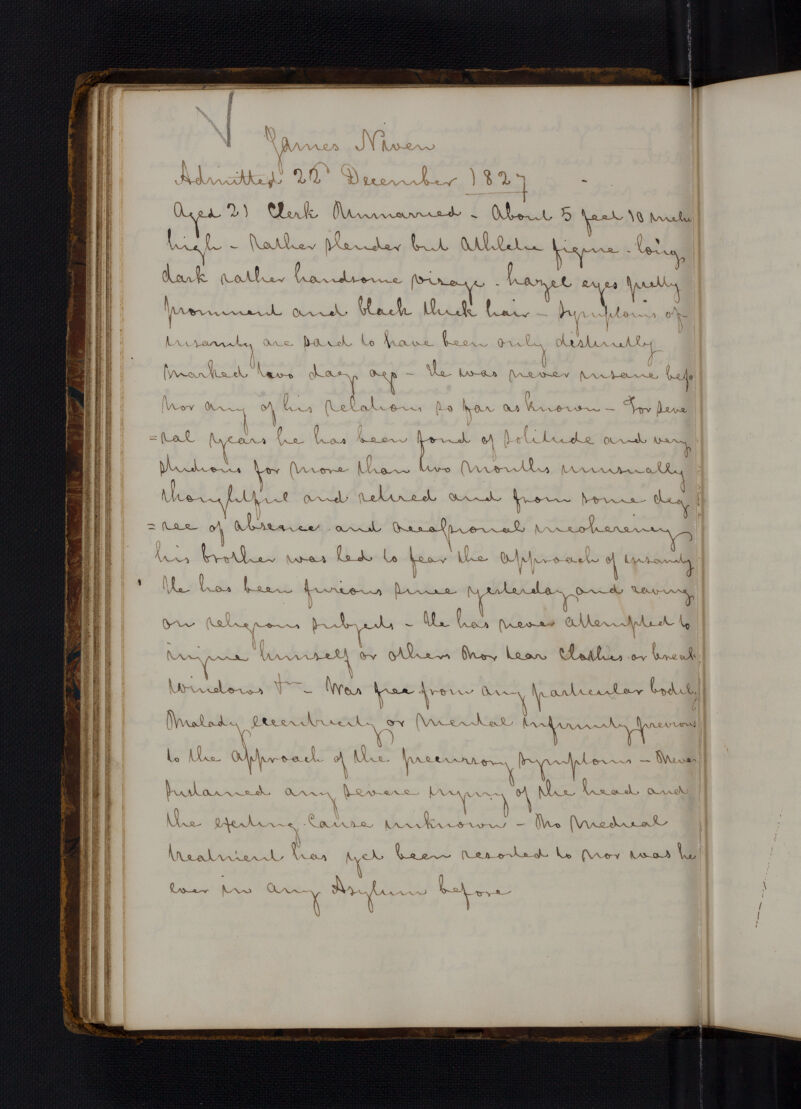 James Niven
Admitted 22d December 1827
Aged 21 Clerk Unmarried - About 5 feet 10 inche
high - Rather slender but athletic figure - long,
dark rather handsome visage - hazel eyes pretty
prominent and black thick hair - Symptoms of
insanity are said to have been only distinctly
marked two days ago - He was never insane befo
nor any of his relations so far as known - For seve
=ral years he has been fond of solitude and very
studious for more than two months unusually
thoughtful and retired and from some deg
=ree of absence and occasional incoherency
his brother was led to fear the approach of insanity
He has been furious since yesterday and raving
on religious subjects - He has never attempted to
injure himself or others nor tear clothes or break
windows - Was free from any particular bodily
malady, eccentricity or mental infirmity previous
to the approach of the precursory symptoms - Never
sustained any severe injury of the head and
the exciting cause unknown - No medical
treatment has yet been resorted to nor was he
ever in any Asylum before